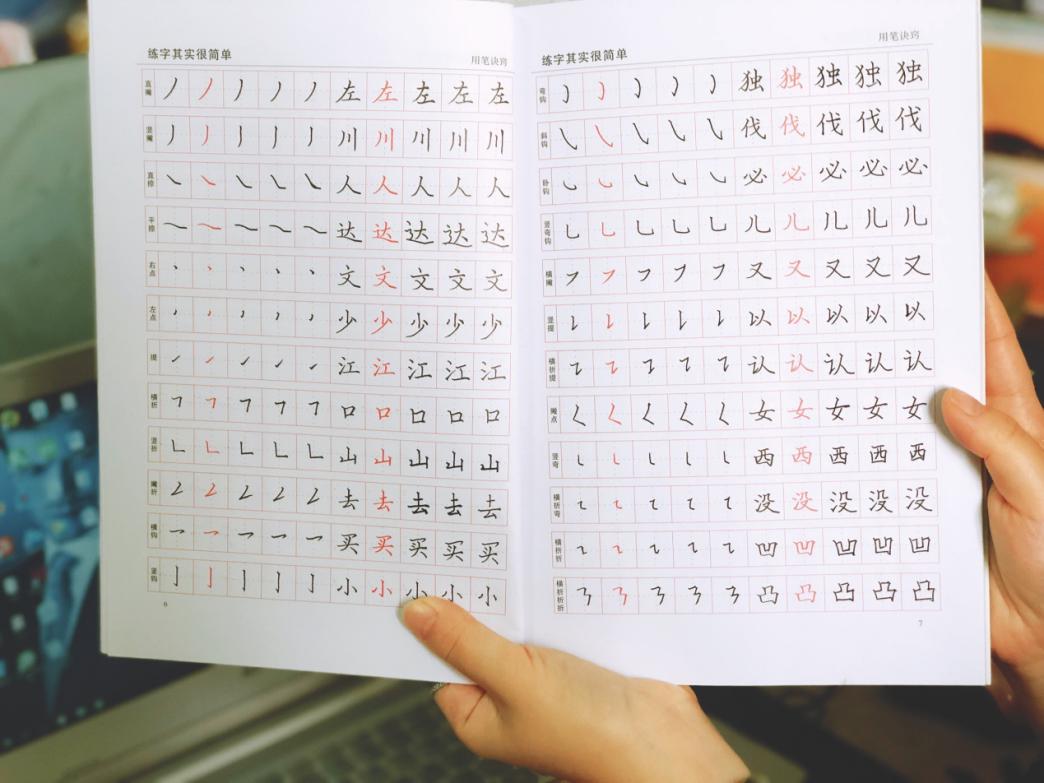 练字其实很简单
用笔诀窍
直撇 左 左 左 左 左
竖撇 川 川 川 川 川
直捺 人 人 人 人 人
平捺 达 达 达 达 达
右点 文 文 文 文 文
左点 少 少 少 少 少
提 江 江 江 江 江
横折 口 口 口 口 口
竖折 山 山 山 山 山
撇折 去 去 去 去 去
横钩 买 买 买 买 买
竖钩 小 小 小 小 小
6
练字其实很简单
用笔诀窍
弯钩 独 独 独 独 独
斜钩 伐 伐 伐 伐 伐
卧钩 必 必 必 必 必
竖弯钩 儿 儿 儿 儿 儿
横撇 又 又 又 又 又
竖提 以 以 以 以 以
横折提 认 认 认 认 认
撇点 女 女 女 女 女
竖弯 西 西 西 西 西
横折弯 没 没 没 没 没
横折折 凹 凹 凹 凹 凹
横折折折 凸 凸 凸 凸 凸
7